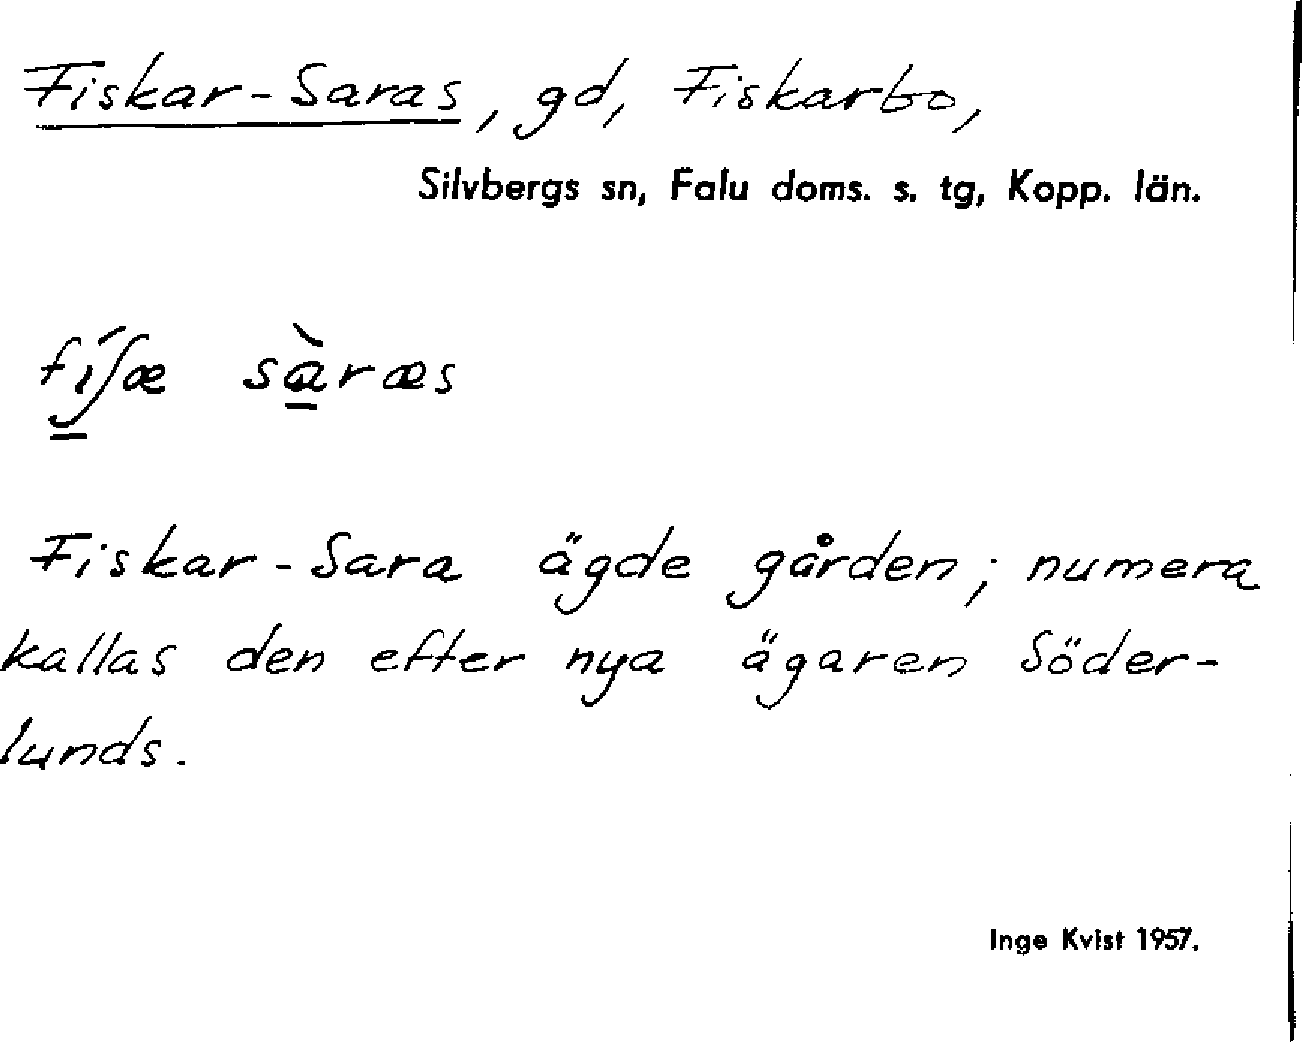 Fiskar-Saras, gd, Fiskarbo,
Silvbergs sn, Falu doms. s. tg, Kopp. län.
fíʃæ sàræs
Fiskar-Sara ägde gården; numera
kallas den efter nya ägaren Söder-
lunds.
Inge Kvist 1957.